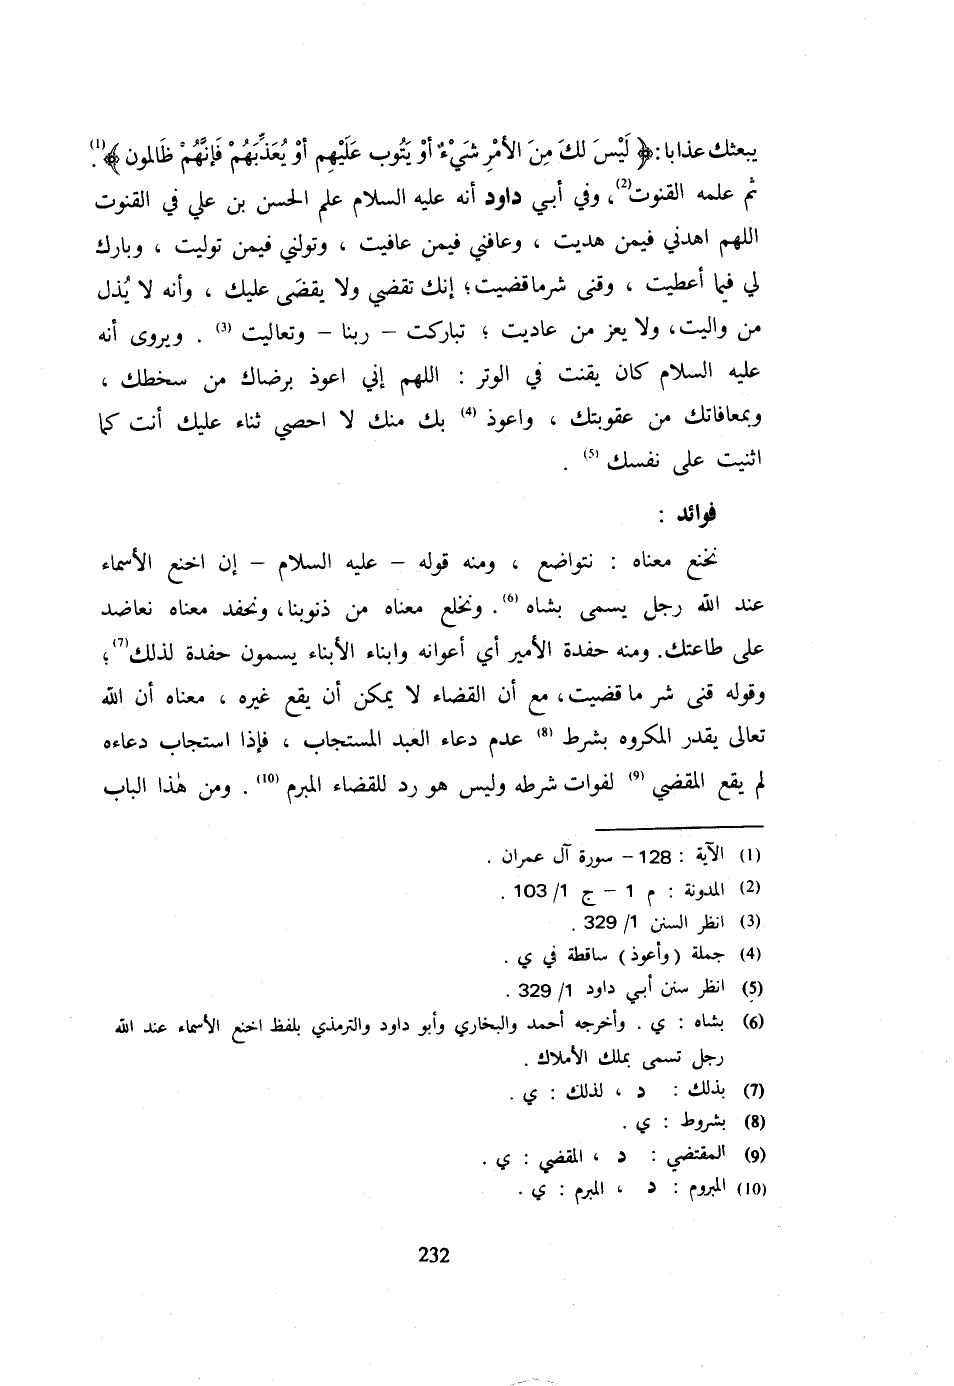 يبعثك عذابا: ﴿ لَيْسَ لكَ مِنَ الأمْرِ شَيْءٌ أوْ يَتُوب عَلَيْهِم أوْ يُعَذِّبَهُمْ فَإنَّهُمْ ظَالمون ﴾(1).
ثم علمه القنوت(2)، وفي أبي داود أنه عليه السلام علم الحسن بن علي في القنوت
اللهم اهدني فيمن هديت ، وعافني فيمن عافيت ، وتولني فيمن توليت ، وبارك
لي فيما أعطيت ، وقنى شرما قضيت؛ إنك تقضي ولا يقضَى عليك ، وأنه لا يُذل
من واليت، ولا يعز من عاديت ؛ تباركت – ربنا – وتعاليت (3) . ويروى أنه
عليه السلام كان يقنت في الوتر : اللهم إني اعوذ برضاك من سخطك ،
وبمعافاتك من عقوبتك ، واعوذ (4) بك منك لا احصي ثناء عليك أنت كما
اثنيت على نفسك (5) .
فوائد :
نخنع معناه : نتواضع ، ومنه قوله – عليه السلام – إن اخنع الأسماء
عند الله رجل يسمى بشاه (6). ونخلع معناه من ذنوبنا، ونحفد معناه نعاضد
على طاعتك. ومنه حفدة الأمير أي أعوانه وابناء الأبناء يسمون حفدة لذلك(7)؛
وقوله قنى شر ما قضيت، مع أن القضاء لا يمكن أن يقع غيره ، معناه أن الله
تعالى يقدر المكروه بشرط (8) عدم دعاء العبد المستجاب ، فإذا استجاب دعاءه
لم يقع المقضي (9) لفوات شرطه وليس هو رد للقضاء المبرم (10) . ومن هٰذا الباب
(1) الآية : 128 – سورة آل عمران .
(2) المدونة : م 1 – ج 1/ 103 .
(3) انظر السنن 1/ 329 .
(4) جملة (وأعوذ) ساقطة في ي .
(5) انظر سنن أبي داود 1/ 329 .
(6) بشاه : ي . وأخرجه أحمد والبخاري وأبو داود والترمذي بلفظ اخنع الأسماء عند الله
رجل تسمى بملك الأملاك .
(7) بذلك : د ، لذلك : ي .
(8) بشروط : ي .
(9) المقتضي : د ، المقضي : ي .
(10) المبروم : د ، المبرم : ي .
232